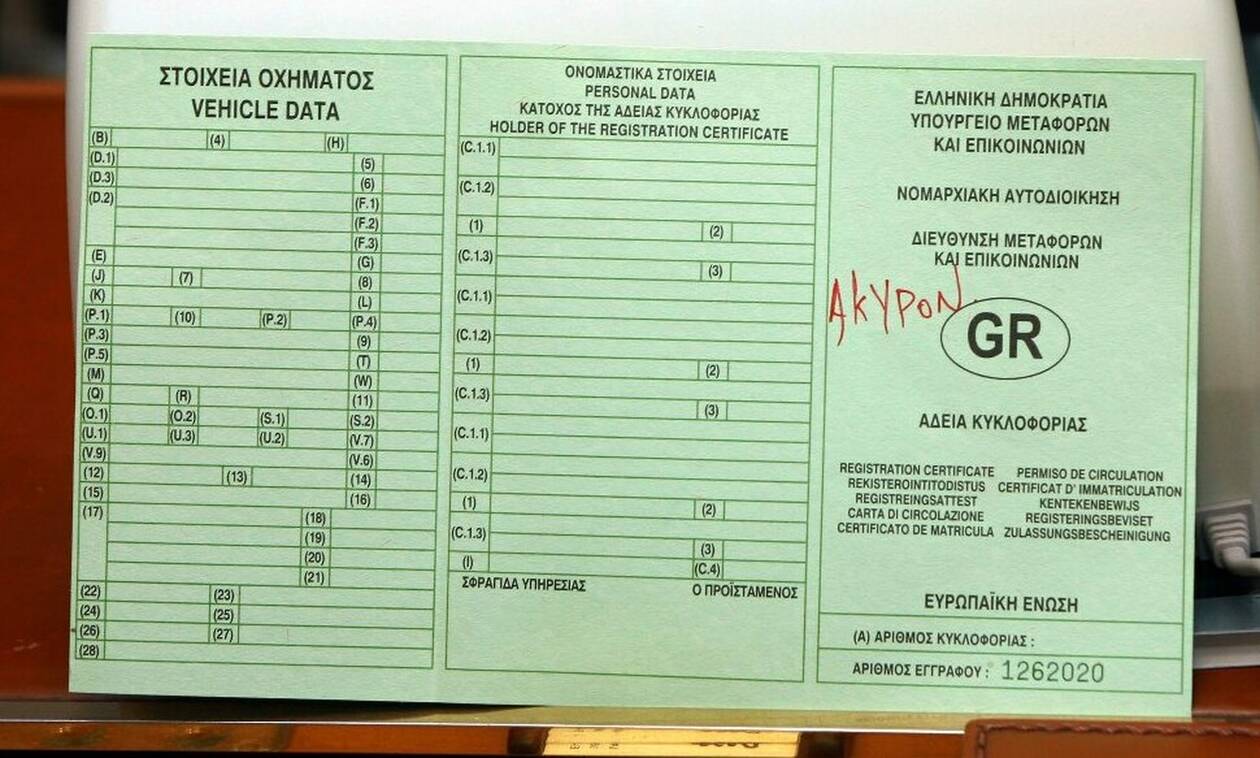 ΣΤΟΙΧΕΙΑ ΟΧΗΜΑΤΟΣ
VEHICLE DATA
(B) (4) (H)
(D.1) (5)
(D.3) (6)
(D.2) (F.1)
(F.2)
(F.3)
(E) (G)
(J) (7) (8)
(K) (L)
(P.1) (10) (P.2) (P.4)
(P.3) (9)
(P.5) (T)
(M) (W)
(Q) (R) (11)
(O.1) (O.2) (S.1) (S.2)
(U.1) (U.3) (U.2) (V.7)
(V.9) (V.6)
(12) (13) (14)
(15) (16)
(17) (18)
(19)
(20)
(21)
(22) (23)
(24) (25)
(26) (27)
(28)
ΟΝΟΜΑΣΤΙΚΑ ΣΤΟΙΧΕΙΑ
PERSONAL DATA
ΚΑΤΟΧΟΣ ΤΗΣ ΑΔΕΙΑΣ ΚΥΚΛΟΦΟΡΙΑΣ
HOLDER OF THE REGISTRATION CERTIFICATE
(C.1.1)
(C.1.2)
(1) (2)
(C.1.3)
(3)
(C.1.1)
(C.1.2)
(1) (2)
(C.1.3)
(3)
(C.1.1)
(C.1.2)
(1) (2)
(C.1.3)
(3)
(I) (C.4)
ΣΦΡΑΓΙΔΑ ΥΠΗΡΕΣΙΑΣ Ο ΠΡΟΪΣΤΑΜΕΝΟΣ
ΕΛΛΗΝΙΚΗ ΔΗΜΟΚΡΑΤΙΑ
ΥΠΟΥΡΓΕΙΟ ΜΕΤΑΦΟΡΩΝ
ΚΑΙ ΕΠΙΚΟΙΝΩΝΙΩΝ
ΝΟΜΑΡΧΙΑΚΗ ΑΥΤΟΔΙΟΙΚΗΣΗ
ΔΙΕΥΘΥΝΣΗ ΜΕΤΑΦΟΡΩΝ
ΚΑΙ ΕΠΙΚΟΙΝΩΝΙΩΝ
ΑΚΥΡΟΝ
GR
ΑΔΕΙΑ ΚΥΚΛΟΦΟΡΙΑΣ
REGISTRATION CERTIFICATE PERMISO DE CIRCULATION
REKISTEROINTITODISTUS CERTIFICAT D' IMMATRICULATION
REGISTREINGSATTEST KENTEKENBEWIJS
CARTA DI CIRCOLAZIONE REGISTERINGSBEVISET
CERTIFICATO DE MATRICULA ZULASSUNGSBESCHEINIGUNG
ΕΥΡΩΠΑΪΚΗ ΕΝΩΣΗ
(A) ΑΡΙΘΜΟΣ ΚΥΚΛΟΦΟΡΙΑΣ :
ΑΡΙΘΜΟΣ ΕΓΓΡΑΦΟΥ : 1262020